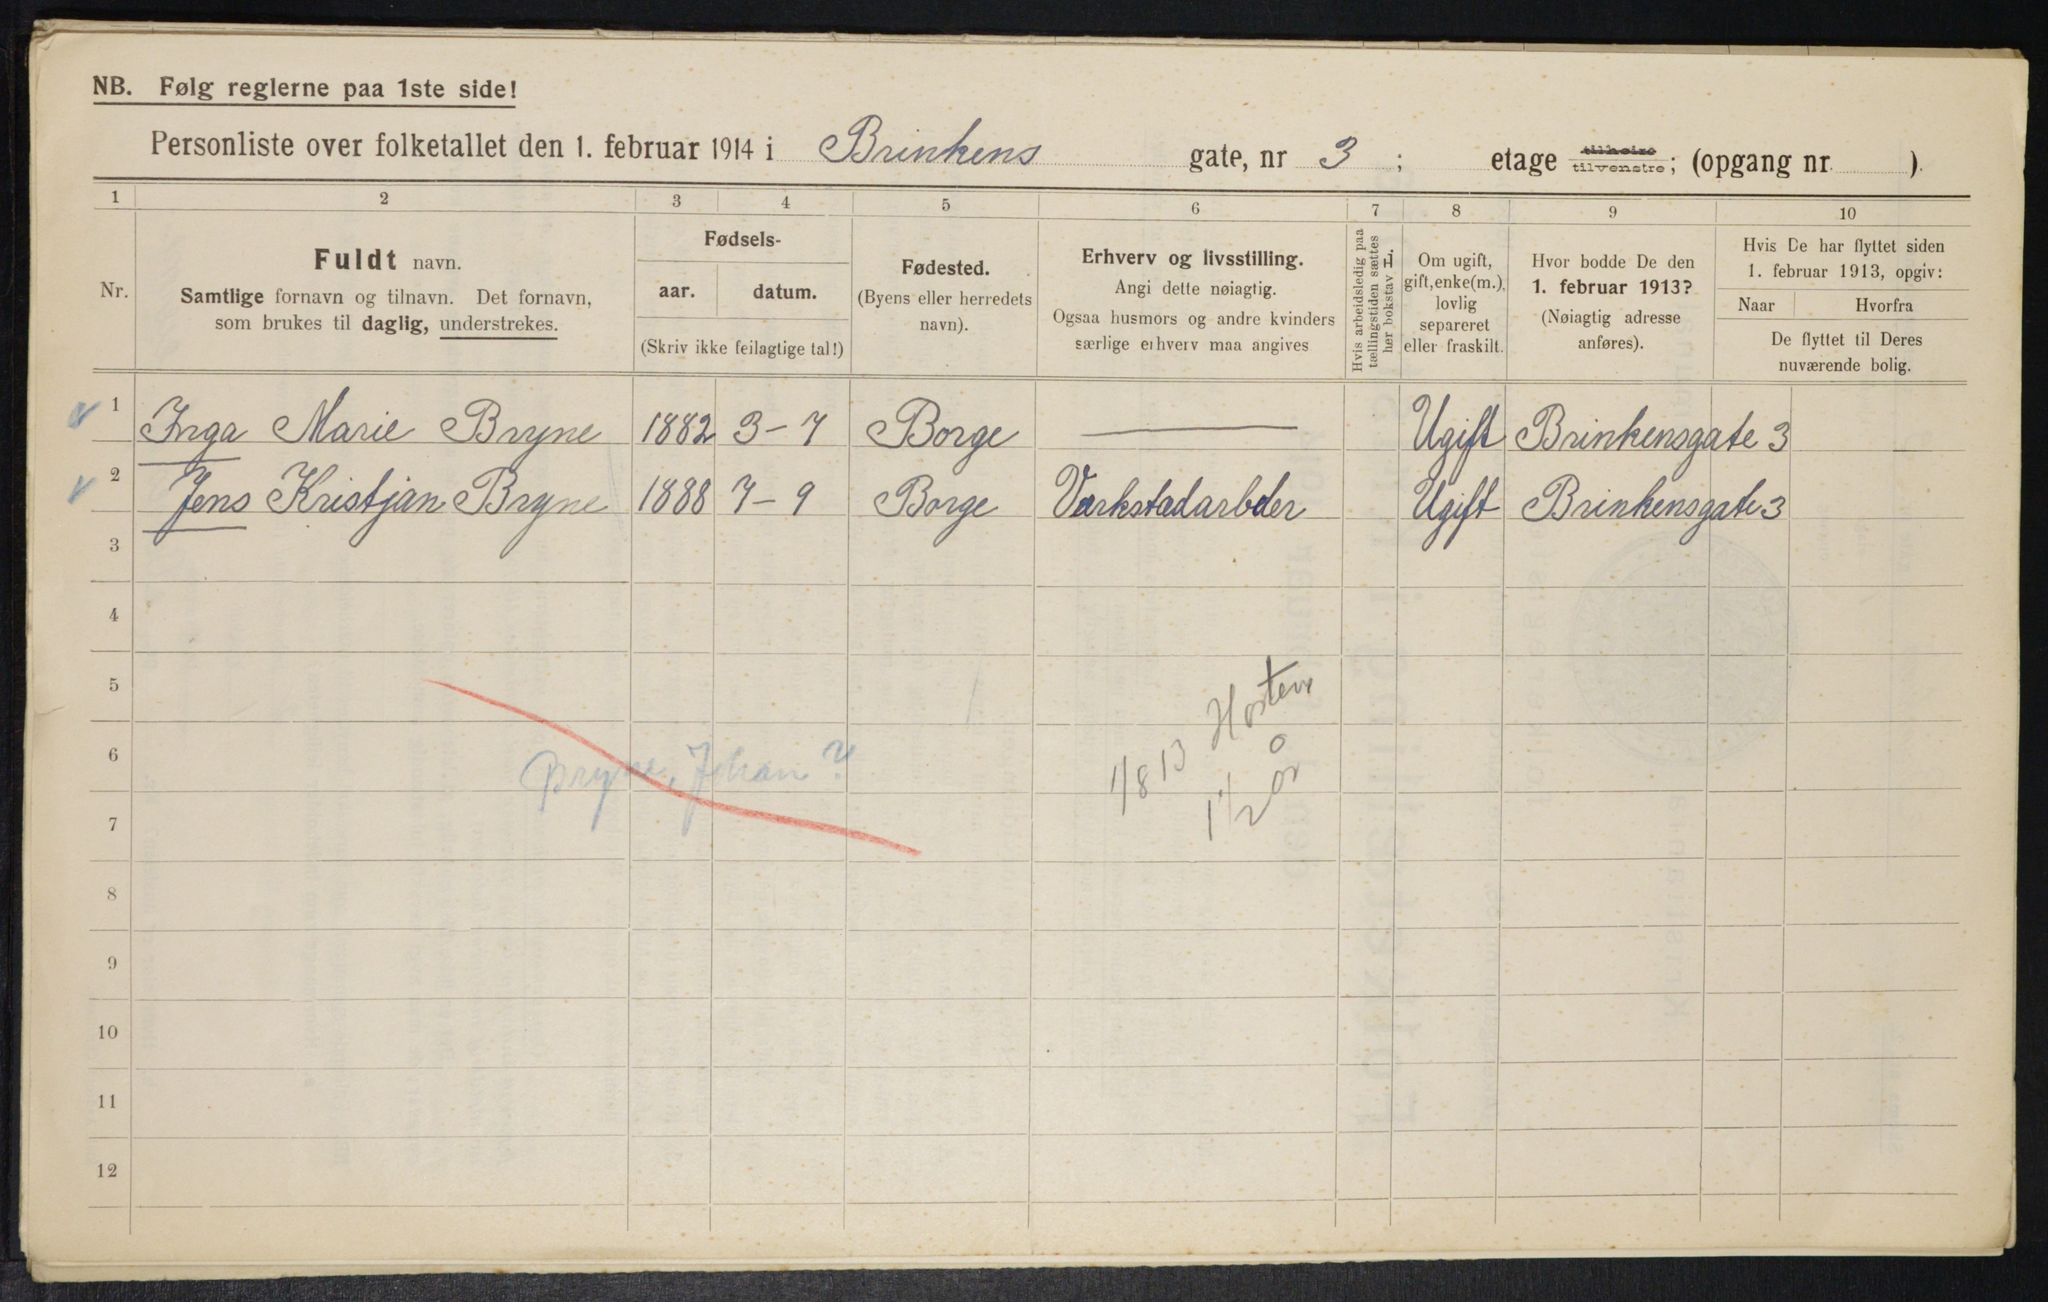 NB. Følg reglerne paa 1ste side!
Personliste over folketallet den 1. februar 1914 i Brinkens gate, nr 3 ; etage tilhøire tilvenstre; (opgang nr ).
1 2 3 4 5 6 7 8 9 10
Nr.
Fuldt navn.
Samtlige fornavn og tilnavn. Det fornavn,
som brukes til daglig, understrekes.
Fødsels-
aar. datum.
(Skriv ikke feilagtige tal!)
Fødested.
(Byens eller herredets
navn).
Erhverv og livsstilling.
Angi dette nøiagtig.
Ogsaa husmors og andre kvinders
særlige erhverv maa angives
Hvis arbeidsledig paa
tællingstiden sættes
her bokstav L.
Om ugift,
gift, enke(m.),
lovlig
separeret
eller fraskilt.
Hvor bodde De den
1. februar 1913?
(Nøiagtig adresse
anføres).
Hvis De har flyttet siden
1. februar 1913, opgiv:
Naar Hvorfra
De flyttet til Deres
nuværende bolig.
1 Inga Marie Bryne 1882 3-7 Borge Ugift Brinkensgate 3
2 Jens Kristjan Bryne 1888 7-9 Borge Varkstadarbder Ugift Brinkensgate 3
3
4
5
6
7
8
9
10
11
12
Bryne, Johan?
1/8 13 Horten
1 1/2